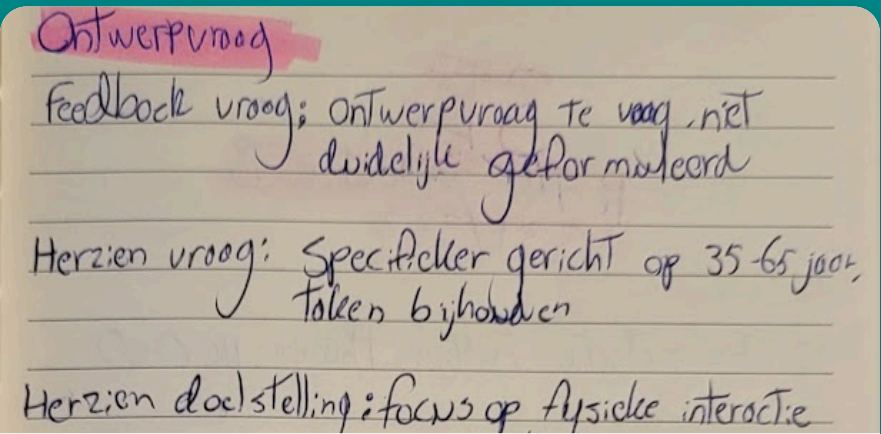 Ontwerpvraag
Feedback vraag: ontwerpvraag te vaag, niet
duidelijk geformuleerd
Herzien vraag: Specifieker gericht op 35-65 jaar,
taken bijhouden
Herzien doelstelling: focus op fysieke interactie